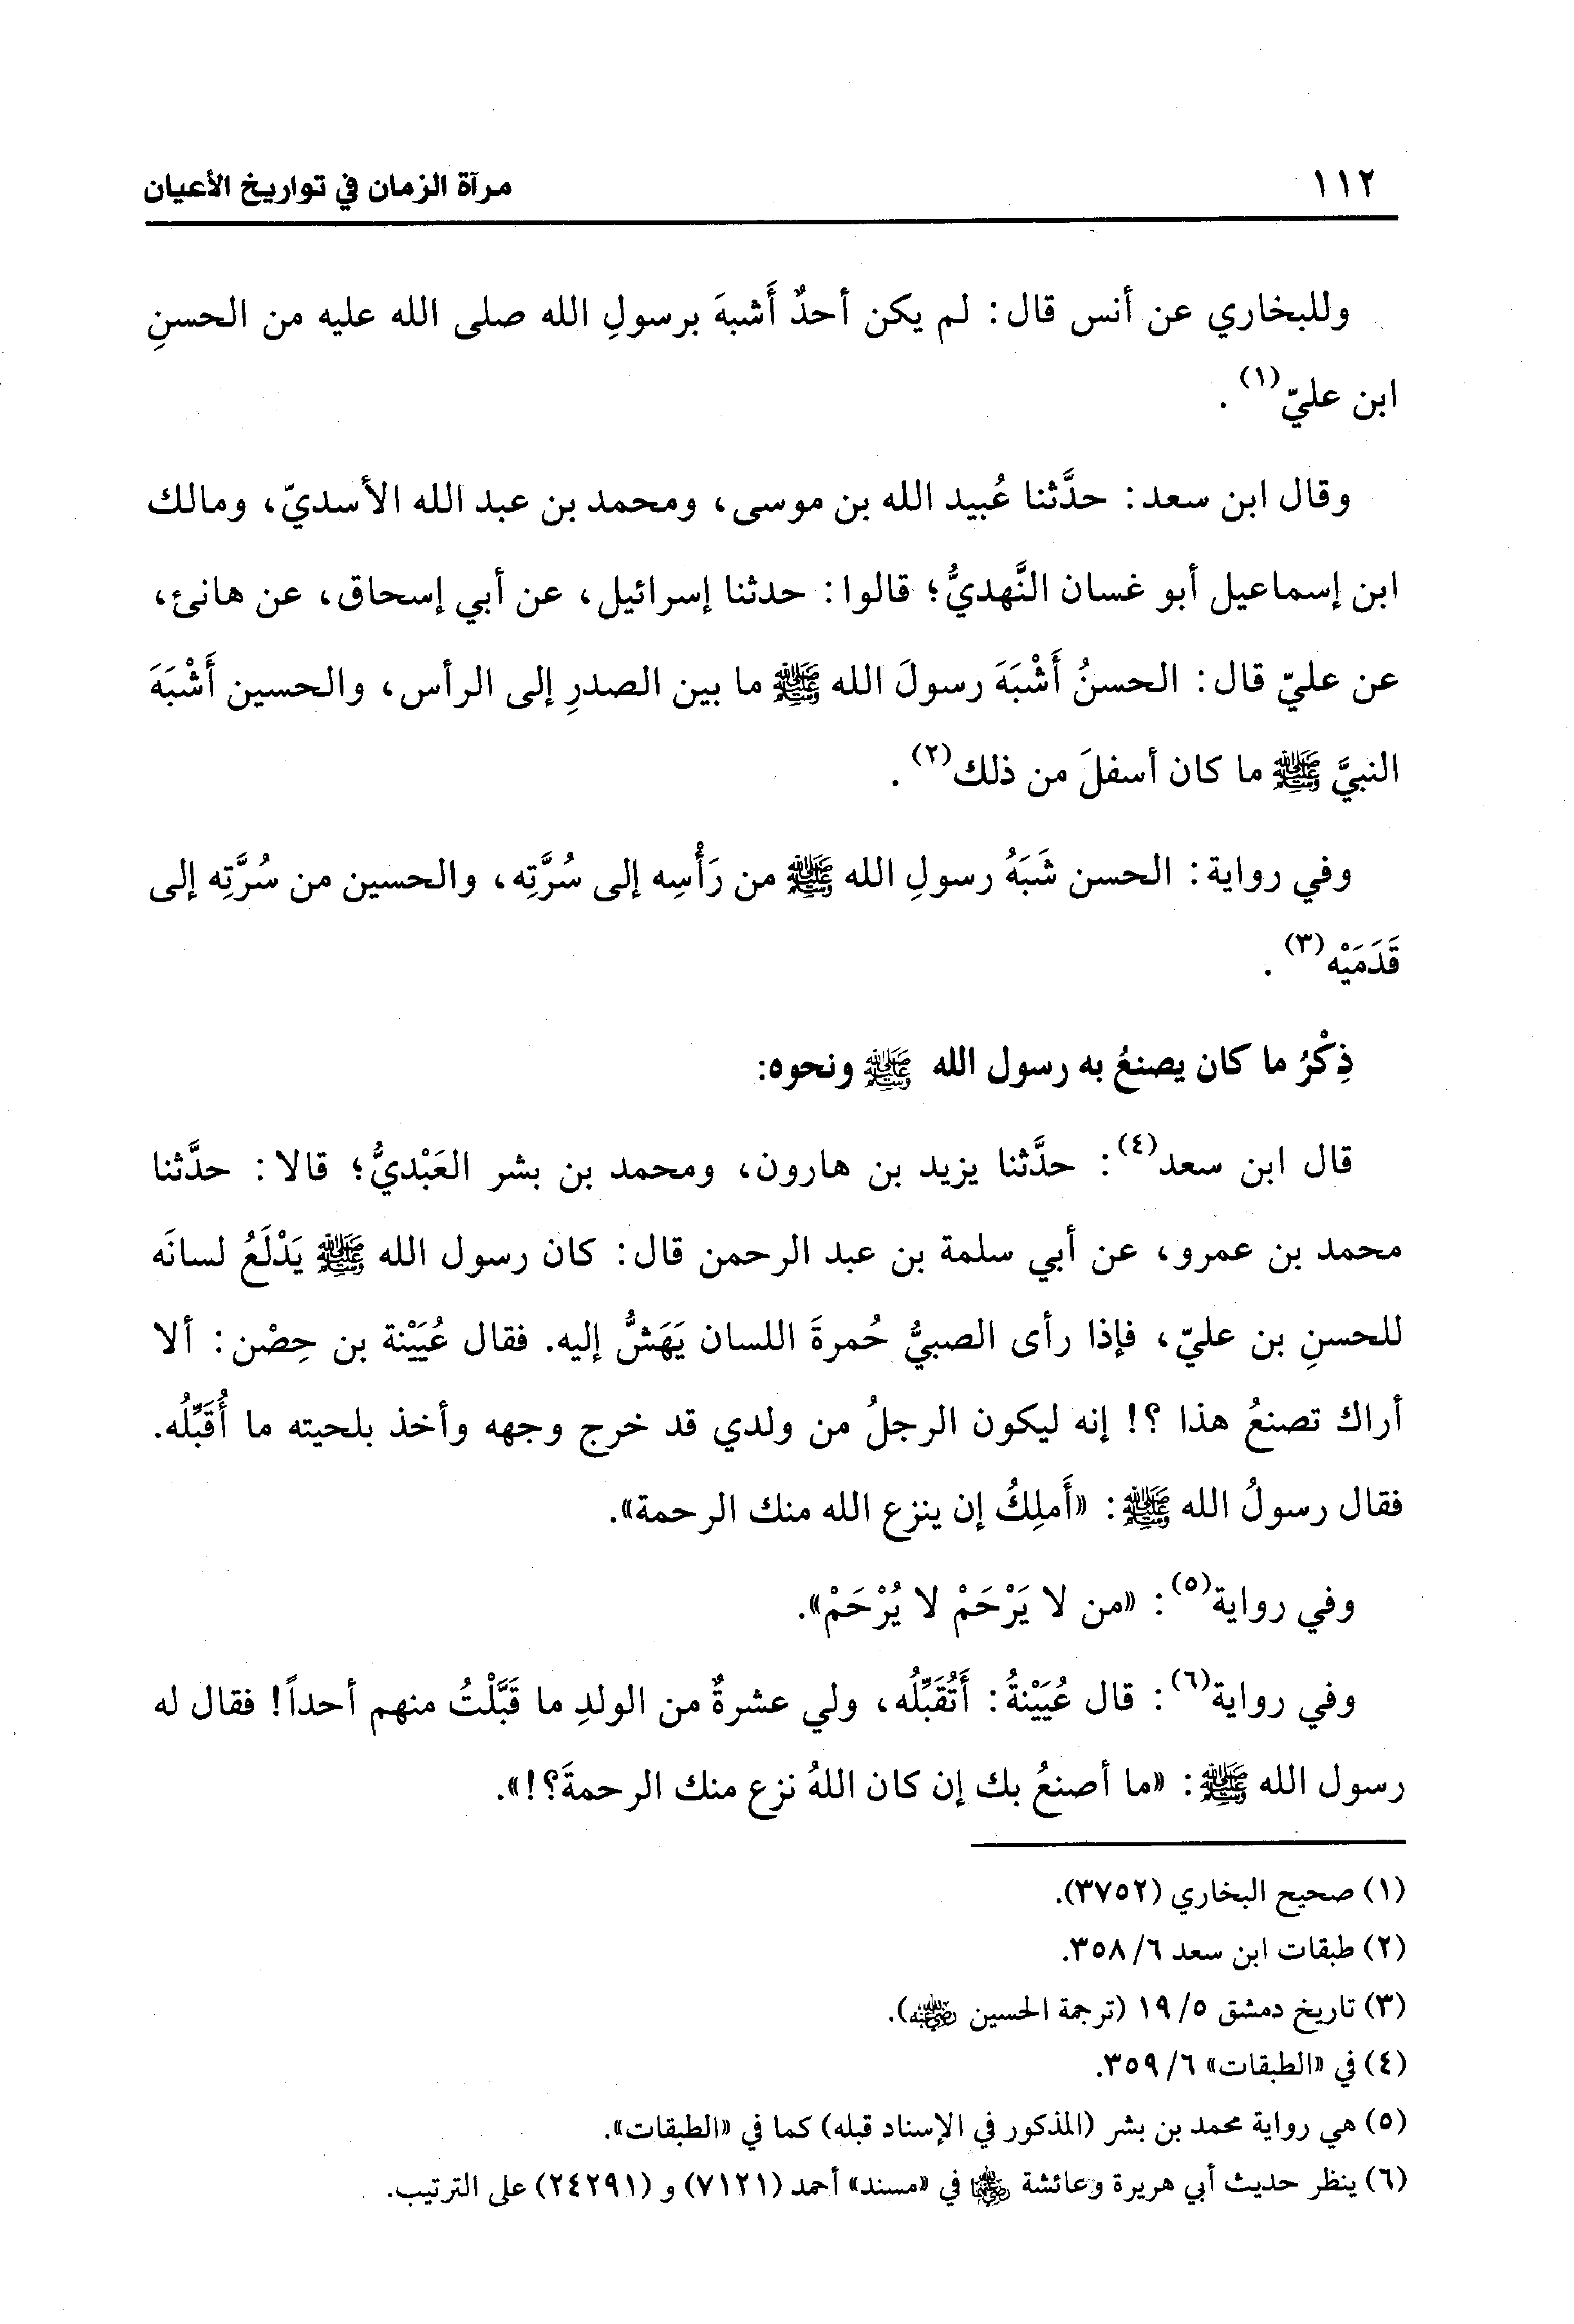 ١١٢ مرآة الزمان في تواريخ الأعيان
وللبخاري عن أنس قال: لم يكن أحدٌ أَشبهَ برسولِ الله صلى الله عليه من الحسنِ
ابن عليّ(١) .
وقال ابن سعد: حدَّثنا عُبيد الله بن موسى، ومحمد بن عبد الله الأسديّ، ومالك
ابن إسماعيل أبو غسان النَّهديُّ؛ قالوا: حدثنا إسرائيل، عن أبي إسحاق، عن هانئ،
عن عليّ قال: الحسنُ أَشْبَهَ رسولَ الله ﷺ ما بين الصدرِ إلى الرأس، والحسين أَشْبَهَ
النبيَّ ﷺ ما كان أسفلَ من ذلك(٢) .
وفي رواية: الحسن شَبَهُ رسولِ الله ﷺ من رَأْسِه إلى سُرَّتِه، والحسين من سُرَّتِه إلى
قَدَمَيْه(٣) .
ذِكْرُ ما كان يصنعُ به رسول الله ﷺ ونحوه:
قال ابن سعد(٤): حدَّثنا يزيد بن هارون، ومحمد بن بشر العَبْديُّ؛ قالا: حدَّثنا
محمد بن عمرو، عن أبي سلمة بن عبد الرحمن قال: كان رسول الله ﷺ يَدْلَعُ لسانَه
للحسنِ بن عليّ، فإذا رأى الصبيُّ حُمرةَ اللسان يَهَشُّ إليه. فقال عُيَيْنة بن حِصْن: ألا
أراك تصنعُ هذا ؟! إنه ليكون الرجلُ من ولدي قد خرج وجهه وأخذ بلحيته ما أُقَبِّلُه.
فقال رسولُ الله ﷺ: «أَملِكُ إن ينزع الله منك الرحمة».
وفي رواية(٥): «من لا يَرْحَمْ لا يُرْحَمْ».
وفي رواية(٦): قال عُيَيْنةُ: أَتُقَبِّلُه، ولي عشرةٌ من الولدِ ما قَبَّلْتُ منهم أحداً! فقال له
رسول الله ﷺ: «ما أصنعُ بك إن كان اللهُ نزع منك الرحمةَ؟!».
(١) صحيح البخاري (٣٧٥٢).
(٢) طبقات ابن سعد ٦/ ٣٥٨.
(٣) تاريخ دمشق ٥/ ١٩ (ترجمة الحسين رضي الله عنه).
(٤) في «الطبقات» ٦/ ٣٥٩.
(٥) هي رواية محمد بن بشر (المذكور في الإسناد قبله) كما في «الطبقات».
(٦) ينظر حديث أبي هريرة وعائشة رضي الله عنهما في «مسند» أحمد (٧١٢١) و (٢٤٢٩١) على الترتيب.